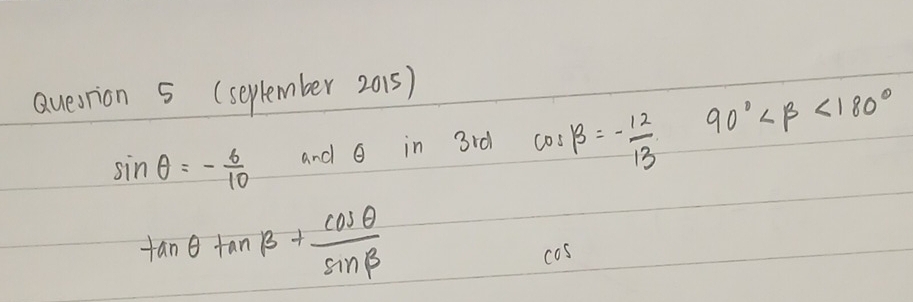 Question 5 (september 2015)
sin θ = - 6/10 and θ in 3rd cos β = - 12/13 90° < β < 180°
tan θ tan β + cos θ / sin β cos